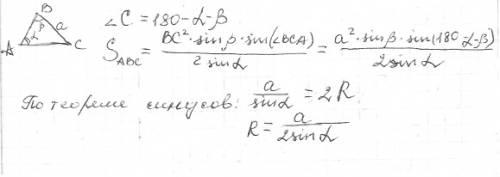 B
β a
A α C
∠C = 180-α-β
S_ABC = BC²·sinβ·sin(∠BCA) / 2 sinα = a²·sinβ·sin(180-α-β) / 2sinα
По теореме синусов: a / sinα = 2R
R = a / 2sinα